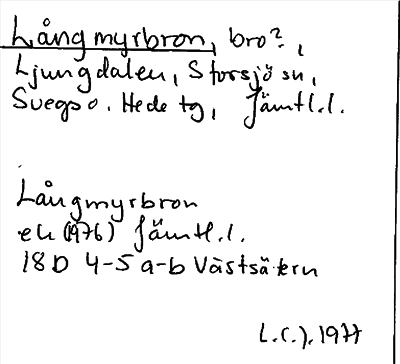 Långmyrbron, bro?,
Ljungdalen, Storsjö sn,
Svegs o. Hede tg, Jämtl.l.
Långmyrbron
ek (1976) Jämtl.l.
18D 4-5 a-b Västsätern
L.C.J. 1977